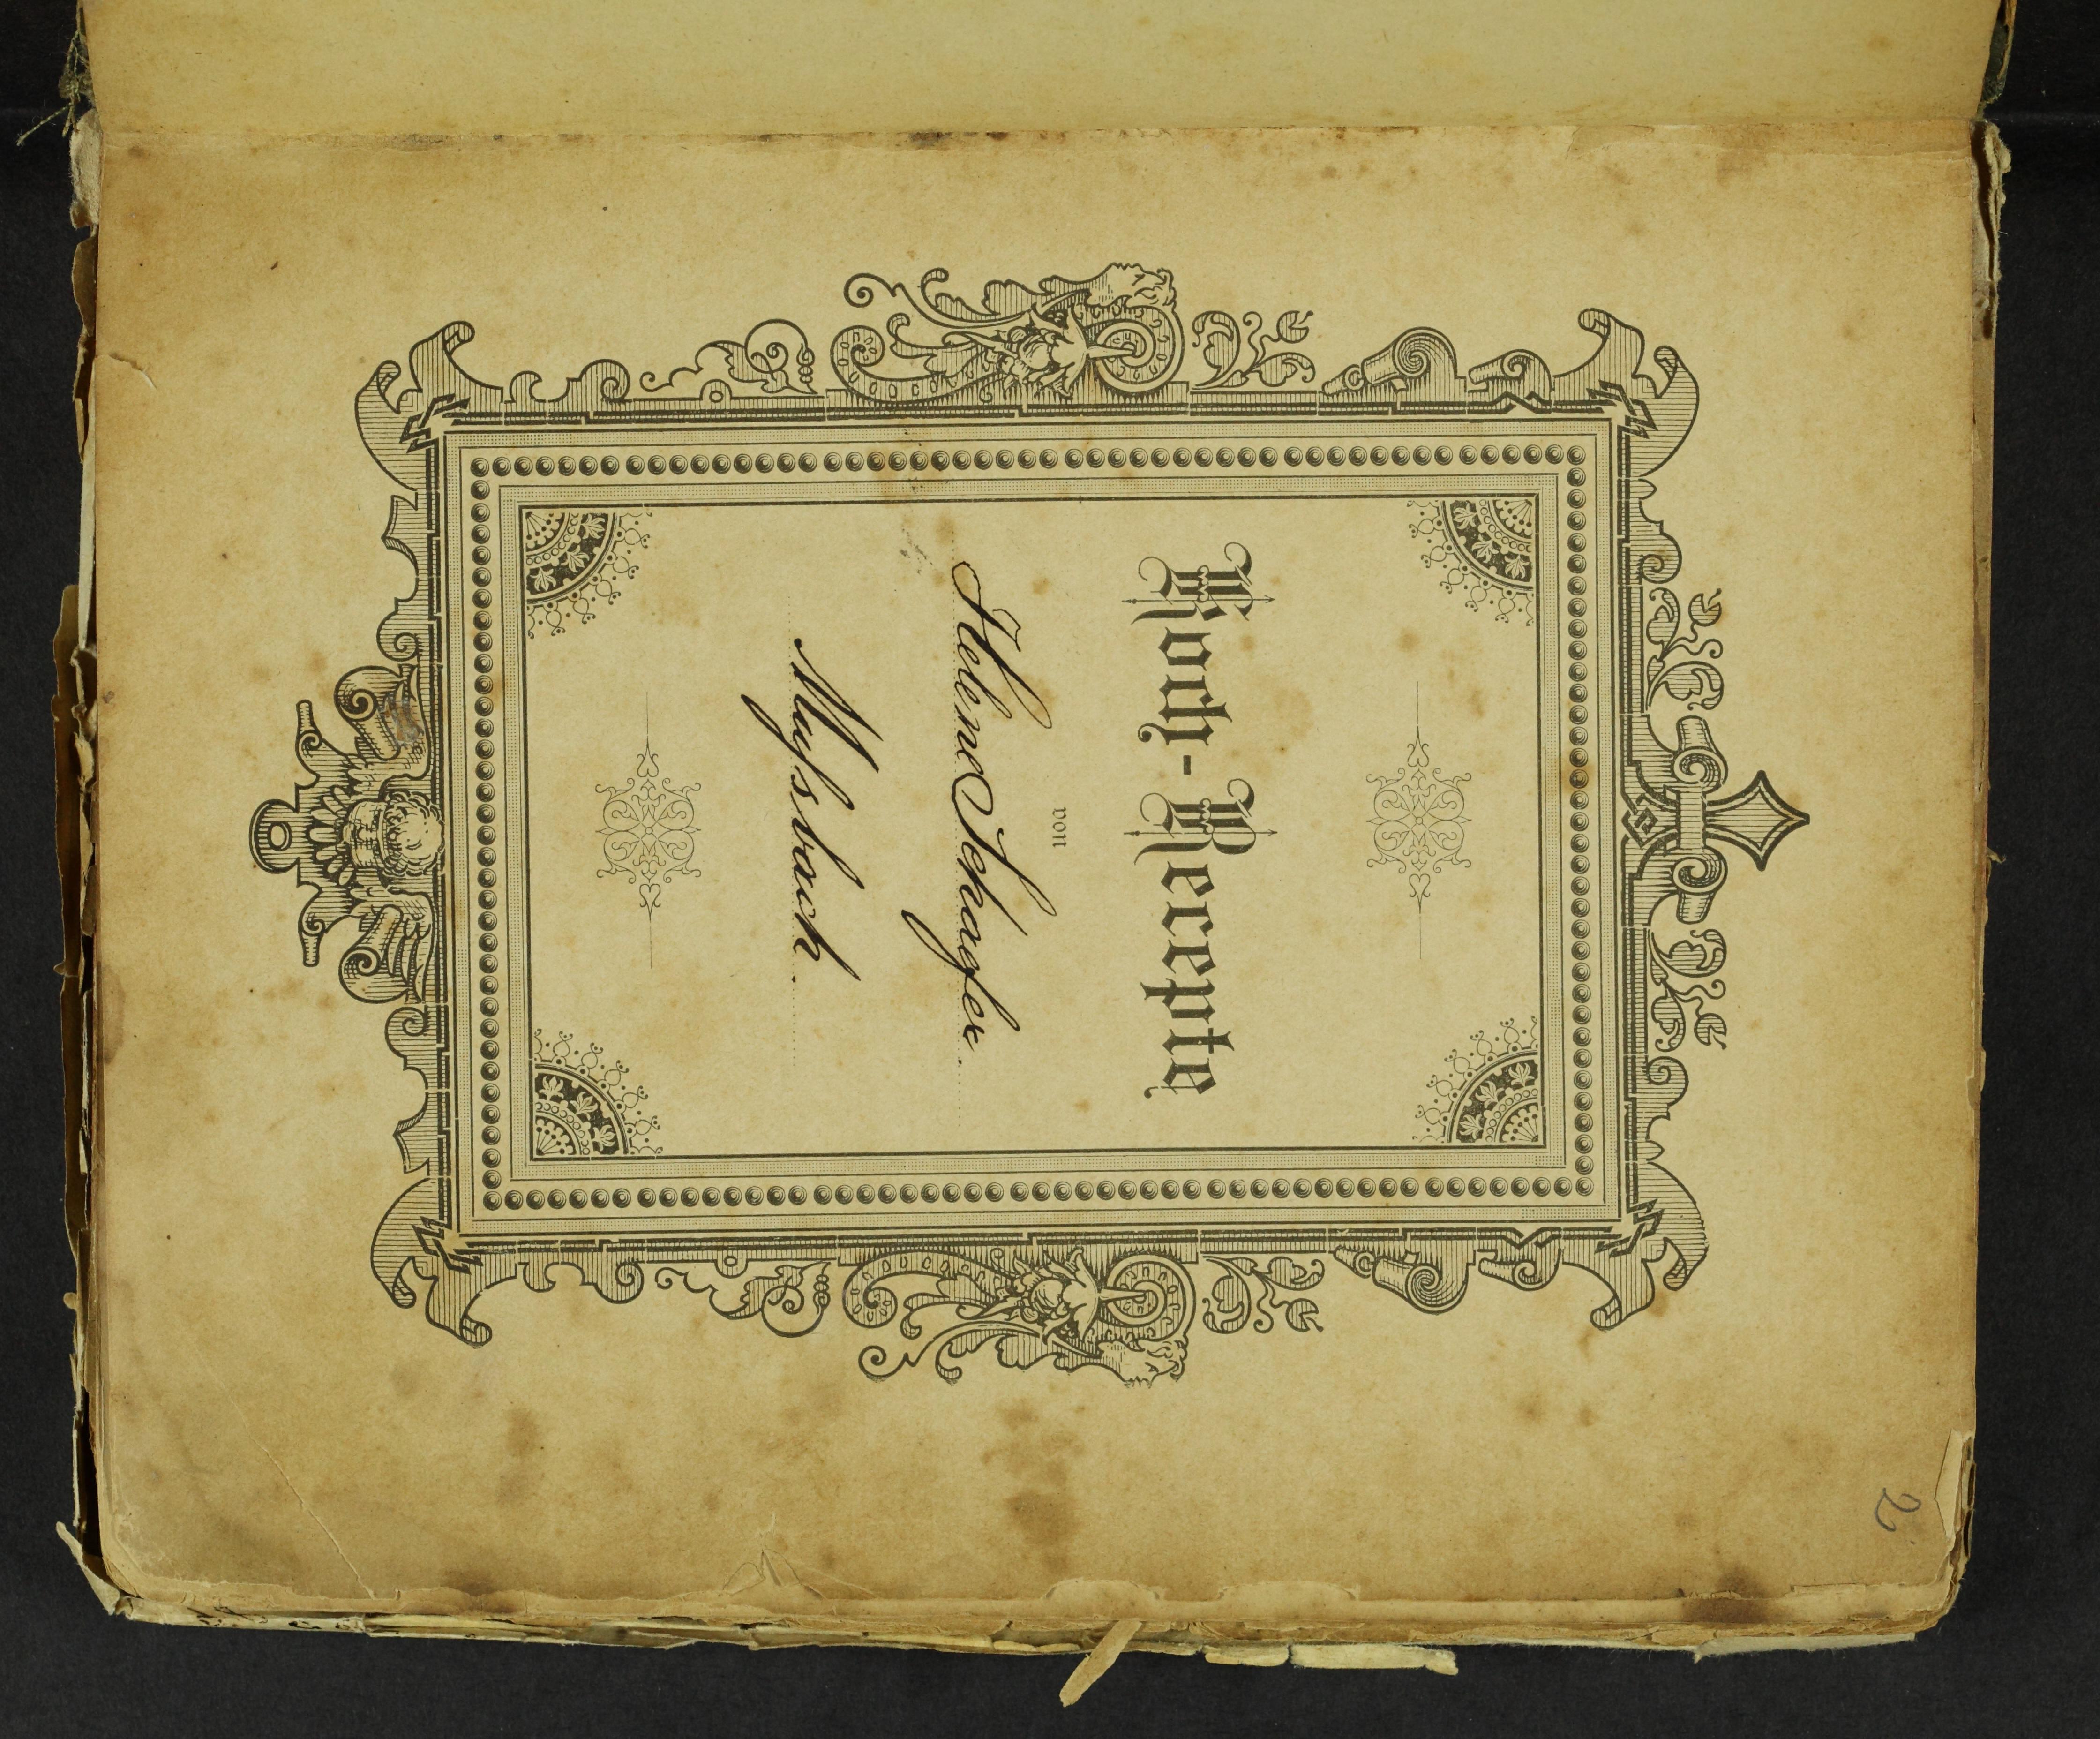 2
Koch-Recepte
von
Helene Schaefer
Mußbach